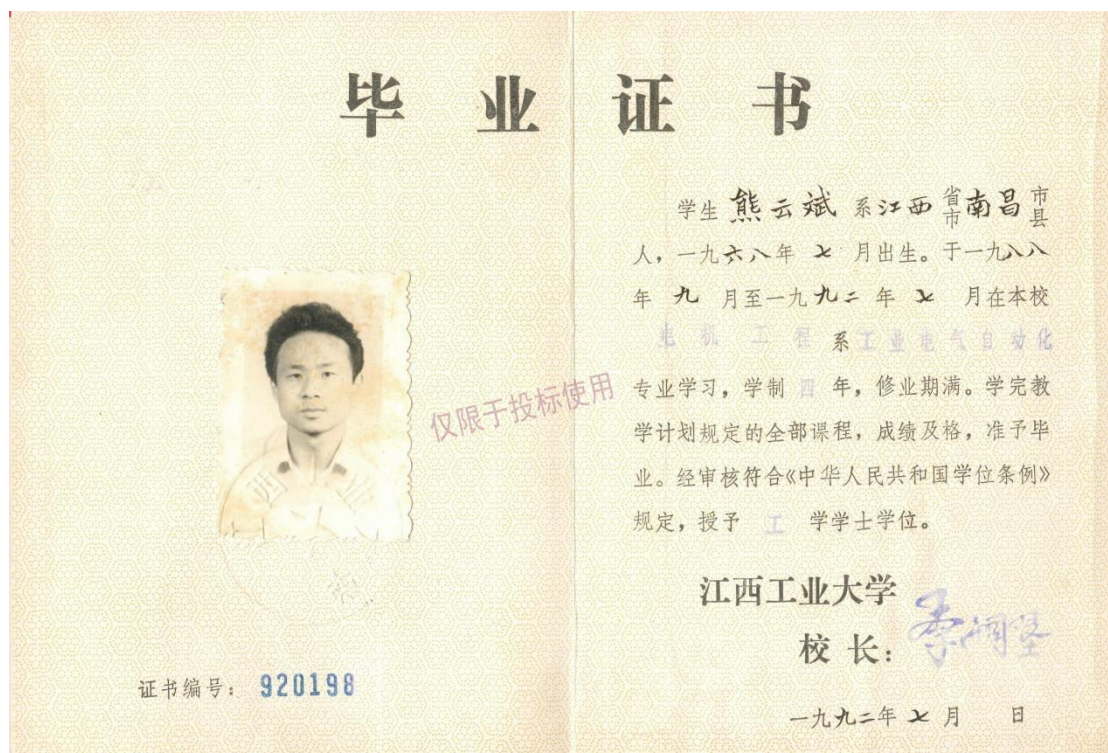 毕业证书
学生 熊云斌 系江西 省市 南昌 市县
人，一九六八年 七 月出生。于一九八八
年 九 月至一九九二 年 七 月在本校
电机工程 系 工业电气自动化
专业学习，学制 四 年，修业期满。学完教
学计划规定的全部课程，成绩及格，准予毕
业。经审核符合《中华人民共和国学位条例》
规定，授予 工 学学士学位。
江西工业大学
校长：
一九九二年 七 月 日
证书编号： 920198
仅限于投标使用